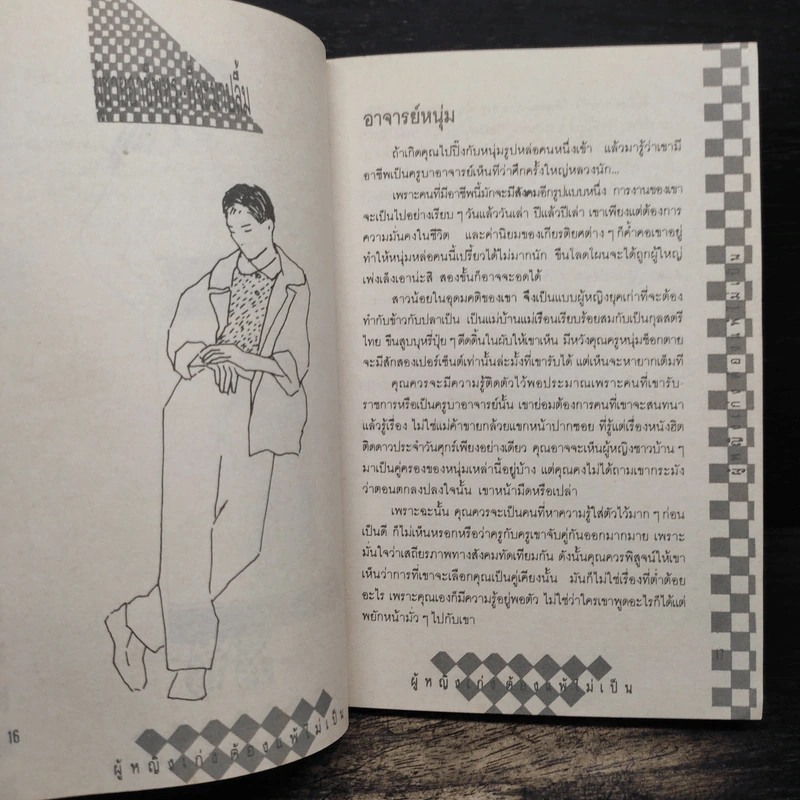 16
ผู้หญิงเก่งต้องแพ้ไม่เป็น
อาจารย์หนุ่ม
ถ้าเกิดคุณไปปิ๊งกับหนุ่มรูปหล่อคนหนึ่งเข้า แล้วมารู้ว่าเขามี
อาชีพเป็นครูบาอาจารย์เห็นทีว่าศึกครั้งใหญ่หลวงนัก...
เพราะคนที่มีอาชีพนี้มักจะมีสังคมอีกรูปแบบหนึ่ง การงานของเขา
จะเป็นไปอย่างเรียบ ๆ วันแล้ววันเล่า ปีแล้วปีเล่า เขาเพียงแต่ต้องการ
ความมั่นคงในชีวิต และค่านิยมของเกียรติยศต่าง ๆ ก็ค้ำคอเขาอยู่
ทำให้หนุ่มหล่อคนนี้เปรี้ยวได้ไม่มากนัก ขืนโลดโผนจะได้ถูกผู้ใหญ่
เพ่งเล็งเอาน่ะสิ สองขั้นก็อาจจะอดได้
สาวน้อยในอุดมคติของเขา จึงเป็นแบบผู้หญิงยุคเก่าที่จะต้อง
ทำกับข้าวกับปลาเป็น เป็นแม่บ้านแม่เรือนเรียบร้อยสมกับเป็นกุลสตรี
ไทย ขืนสูบบุหรี่ปุ๋ย ๆ ดีดดิ้นในผับให้เขาเห็น มีหวังคุณครูหนุ่มช็อกตาย
จะมีสักสองเปอร์เซ็นต์เท่านั้นล่ะมั้งที่เขารับได้ แต่เห็นจะหายากเต็มที
คุณควรจะมีความรู้ติดตัวไว้พอประมาณเพราะคนที่เขารับ-
ราชการหรือเป็นครูบาอาจารย์นั้น เขาย่อมต้องการคนที่เขาจะสนทนา
แล้วรู้เรื่อง ไม่ใช่แม่ค้าขายกล้วยแขกหน้าปากซอย ที่รู้แต่เรื่องหนังฮิต
ติดดาวประจำวันศุกร์เพียงอย่างเดียว คุณอาจจะเห็นผู้หญิงชาวบ้าน ๆ
มาเป็นคู่ครองของหนุ่มเหล่านี้อยู่บ้าง แต่คุณคงไม่ได้ถามเขากระมัง
ว่าตอนตกลงปลงใจนั้น เขาหน้ามืดหรือเปล่า
เพราะฉะนั้น คุณควรจะเป็นคนที่หาความรู้ใส่ตัวไว้มาก ๆ ก่อน
เป็นดี ก็ไม่เห็นหรอกหรือว่าครูกับครูเขาจับคู่กันออกมากมาย เพราะ
มั่นใจว่าเสถียรภาพทางสังคมทัดเทียมกัน ดังนั้นคุณควรพิสูจน์ให้เขา
เห็นว่าการที่เขาจะเลือกคุณเป็นคู่เคียงนั้น มันก็ไม่ใช่เรื่องที่ต่ำต้อย
อะไร เพราะคุณเองก็มีความรู้อยู่พอตัว ไม่ใช่ว่าใครเขาพูดอะไรก็ได้แต่
พยักหน้ามั่ว ๆ ไปกับเขา
ผู้หญิงเก่งต้องแพ้ไม่เป็น
17
ผู้หญิงเก่งต้องแพ้ไม่เป็น